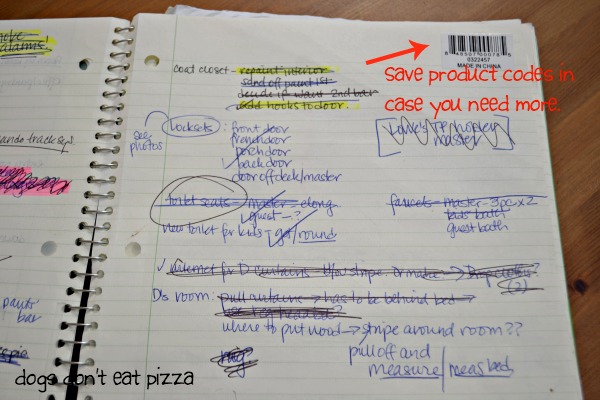 alarms!
ando track sys.
pants
bar
8 40507 00078 5
0322457
MADE IN CHINA
save product codes in
case you need more.
coat closet - repaint interior
sand off paint 1st
decide if want 2nd bar
add hooks to door.
see
photos
Locksets : front door
french door
porch door
back door
door off deck/master
Lowe's
master
toilet seats - master - elong.
guest - ?
new toilet for kids - get round
faucets - master - 3pc x 2
kids bath
guest bath
internet for D curtains - blue stripe or make ->
(2)
D's room: pull curtains -> has to be behind bed ->
use reg headbd?
where to put wood -> stripe around room??
rug
pull off and
measure / meas bed
dogs don't eat pizza